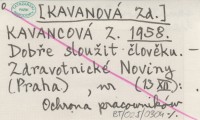 [KAVANOVÁ Zd.]
KAVANCOVÁ Z. 1958.
Dobře sloužit člověku. —
Zdravotnické Noviny
(Praha), nr (13 XII):
Ochrona pracowników